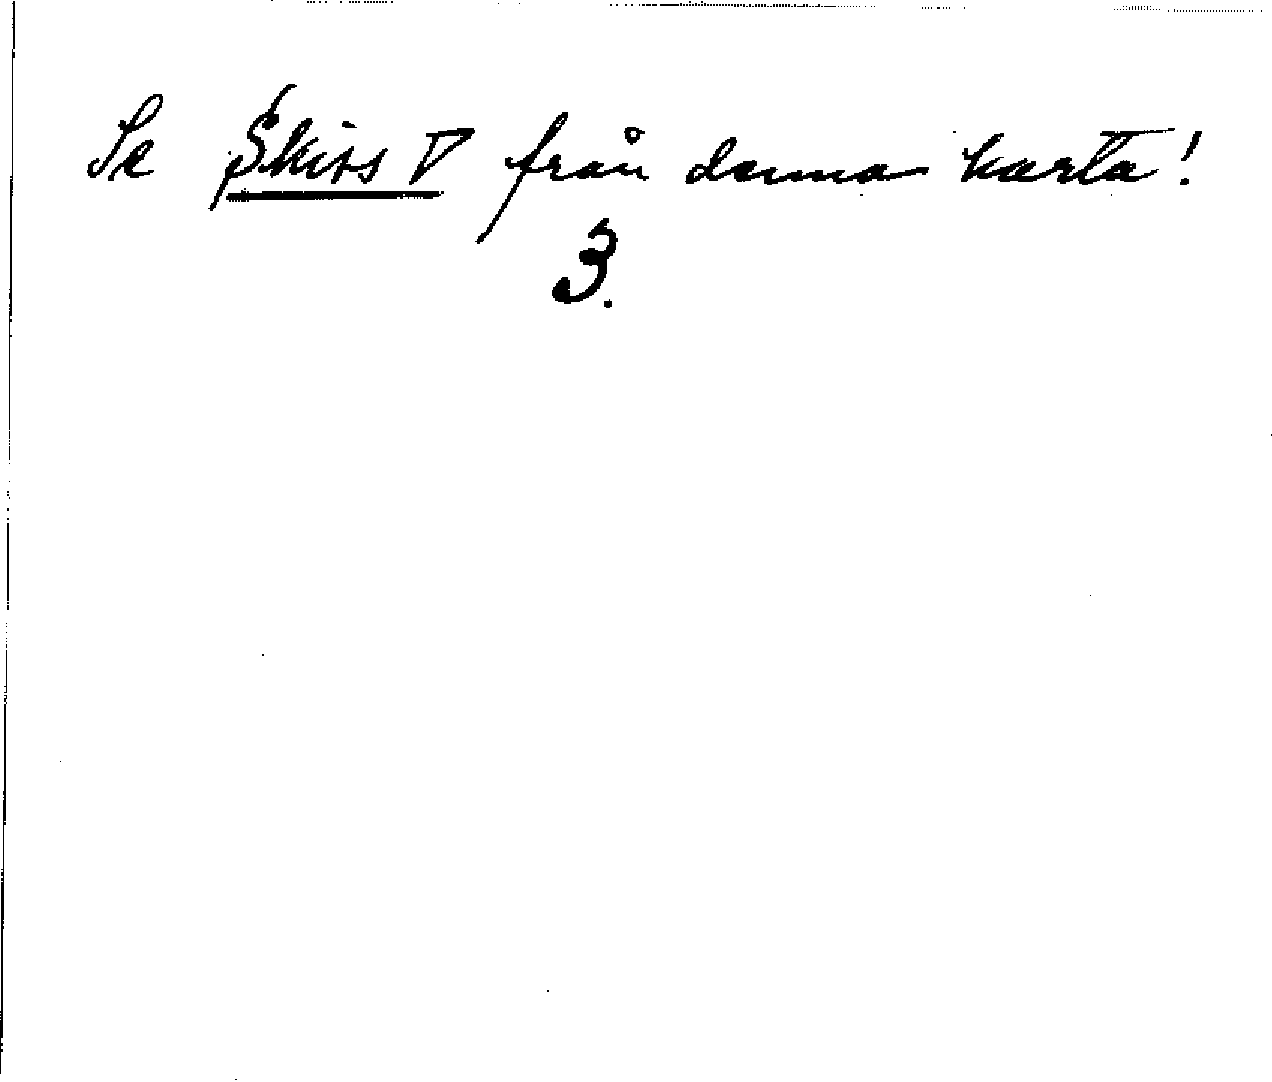 Se Skirs ▽ från denna karta!
3.